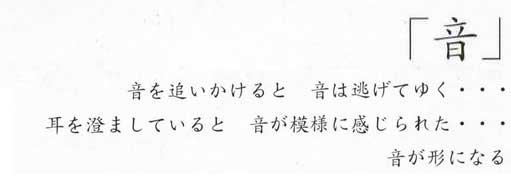 「音」
音を追いかけると　音は逃げてゆく・・・
耳を澄ましていると　音が模様に感じられた・・・
音が形になる